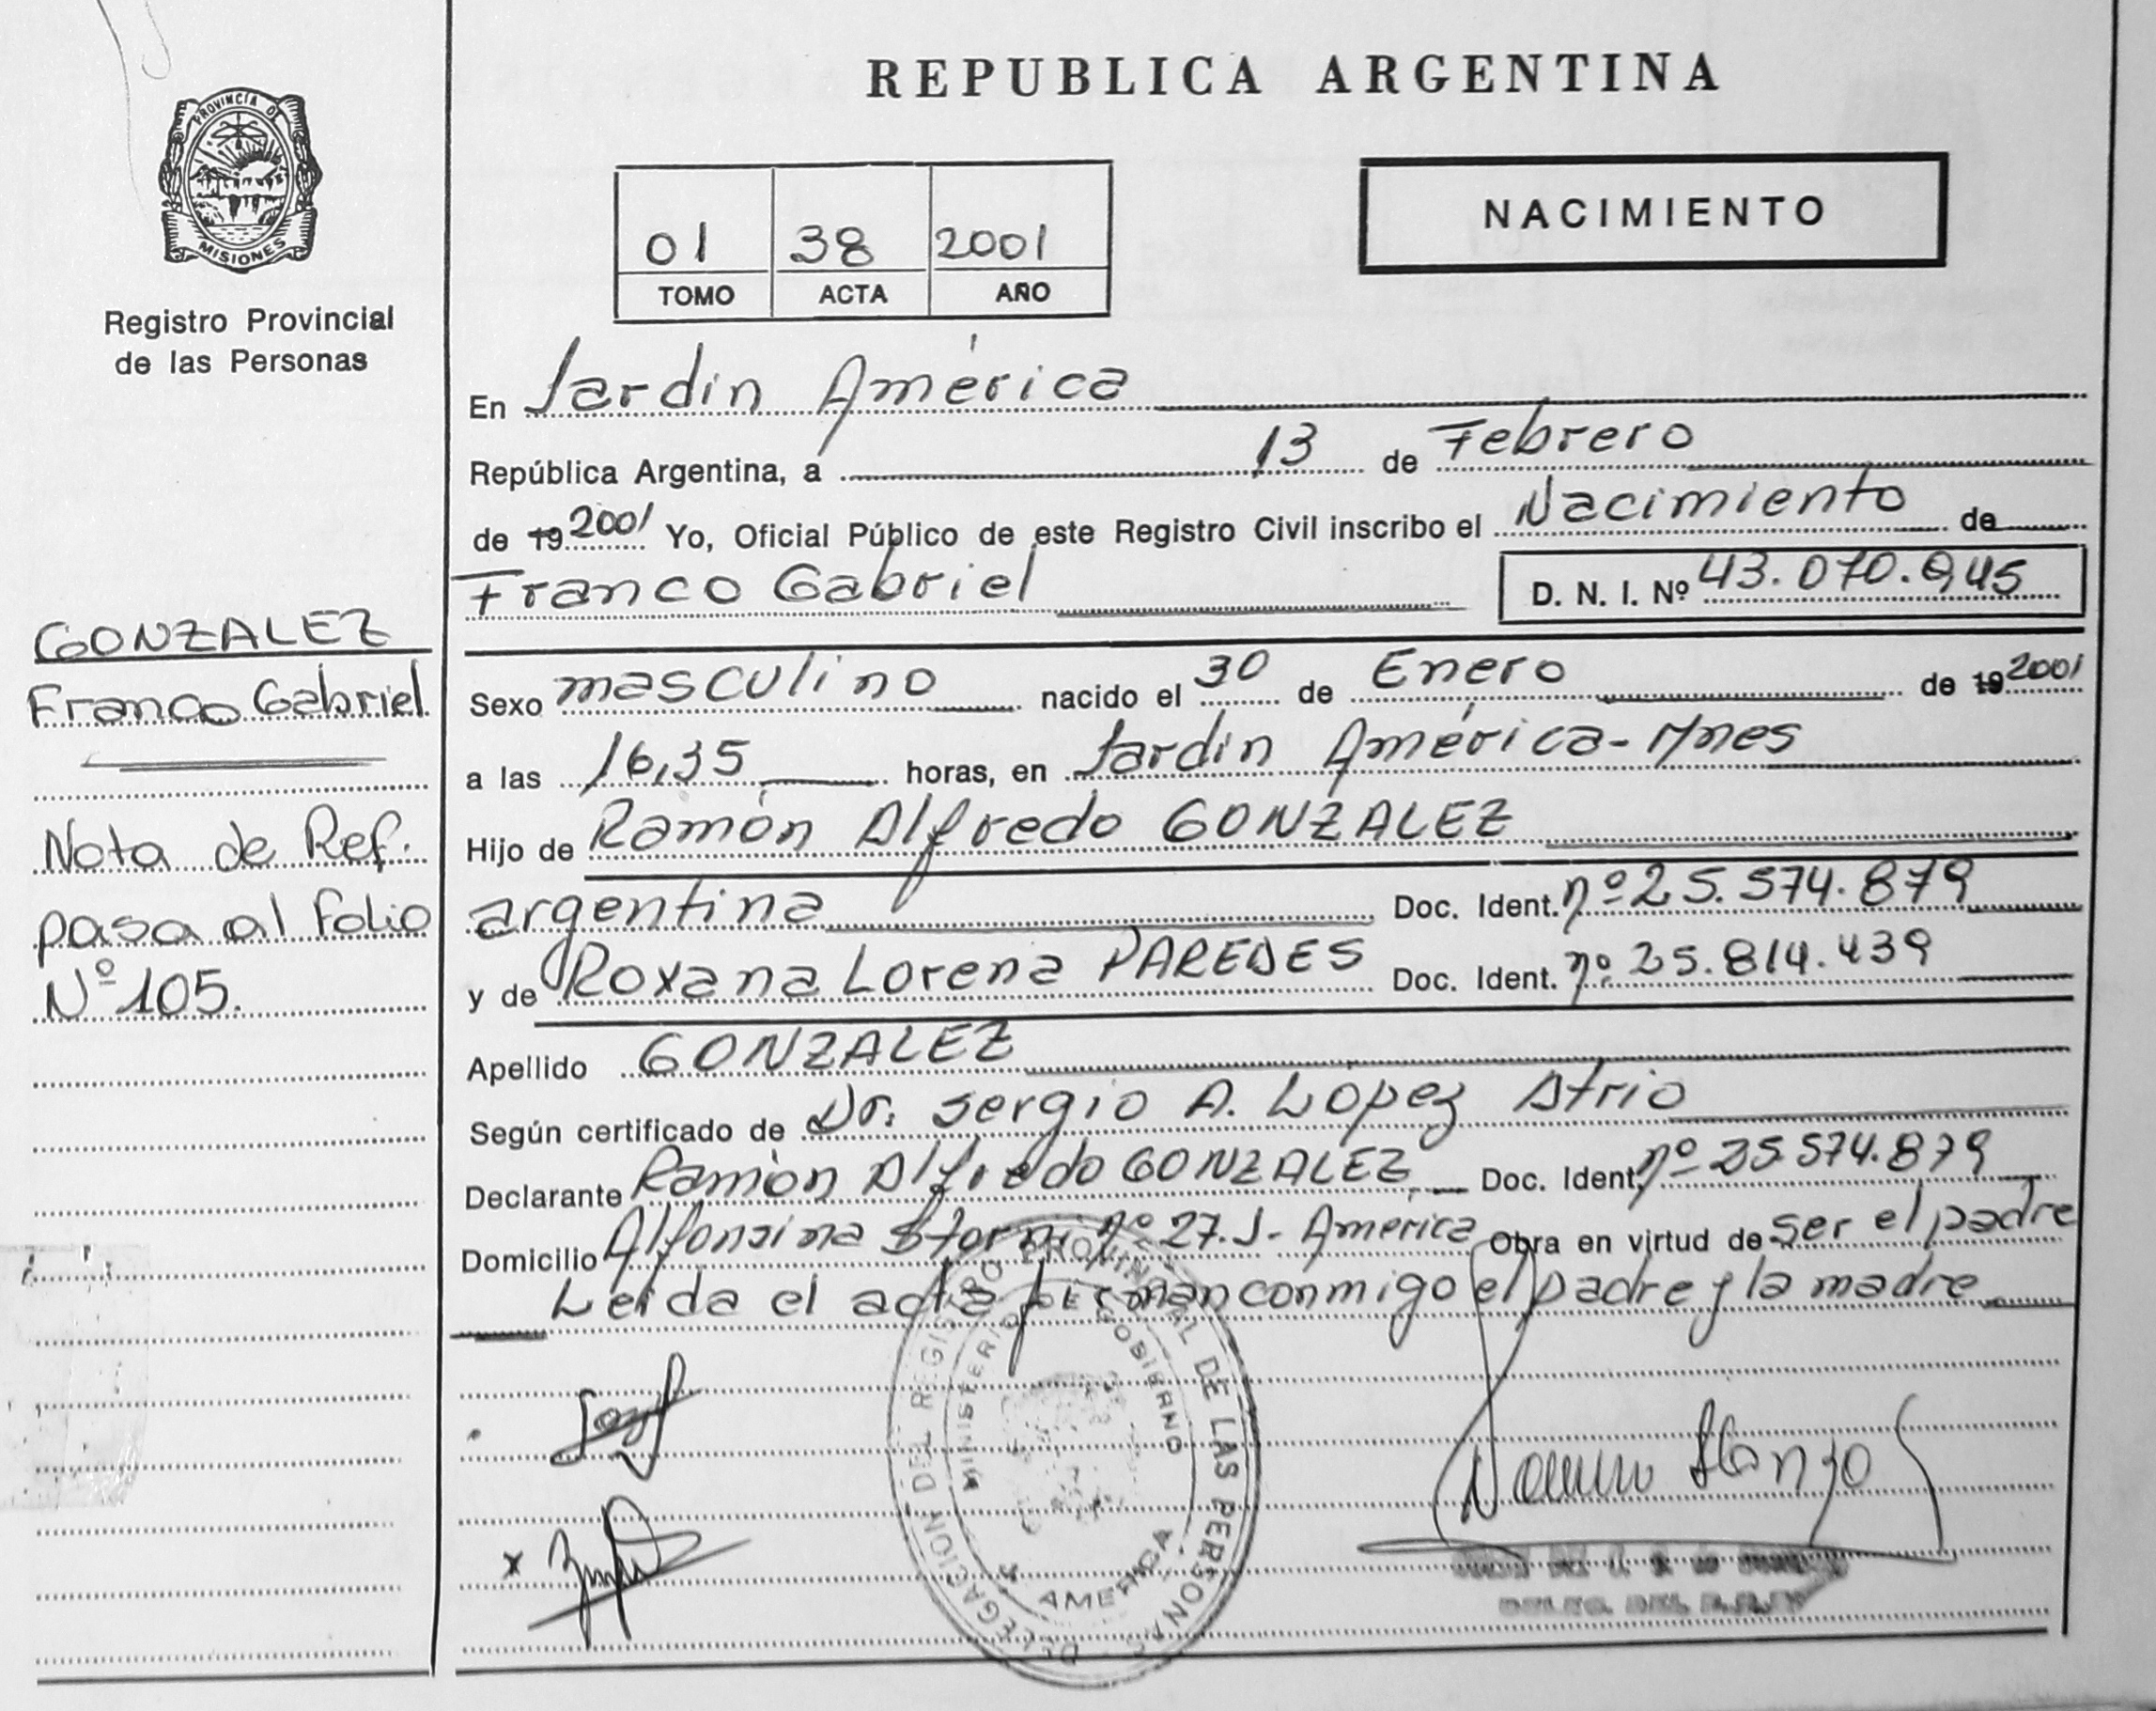 REPUBLICA ARGENTINA
PROVINCIA DE
MISIONES
Registro Provincial
de las Personas
01 38 2001
TOMO ACTA AÑO
NACIMIENTO
En Jardín América
República Argentina, a 13 de Febrero
de 19 2001 Yo, Oficial Público de este Registro Civil inscribo el Nacimiento de
Franco Gabriel D. N. I. Nº 43.070.945
GONZALEZ
Franco Gabriel
Nota de Ref.
pasa al folio
Nº 105.
Sexo masculino nacido el 30 de Enero de 19 2001
a las 16,35 horas, en Jardín América-Mnes
Hijo de Ramón Alfredo GONZALEZ
argentina Doc. Ident. nº 25.574.879
y de Roxana Lorena PAREDES Doc. Ident. nº 25.814.439
Apellido GONZALEZ
Según certificado de Dr. Sergio A. López Atrio
Declarante Ramón Alfredo GONZALEZ Doc. Ident. nº 25.574.879
Domicilio Alfonsina Storni nº 27. J. América Obra en virtud de ser el padre
Leída el acta firman conmigo el padre y la madre
DELEGACION DEL REGISTRO PROVINCIAL DE LAS PERSONAS
MINISTERIO DE GOBIERNO
J. AMERICA